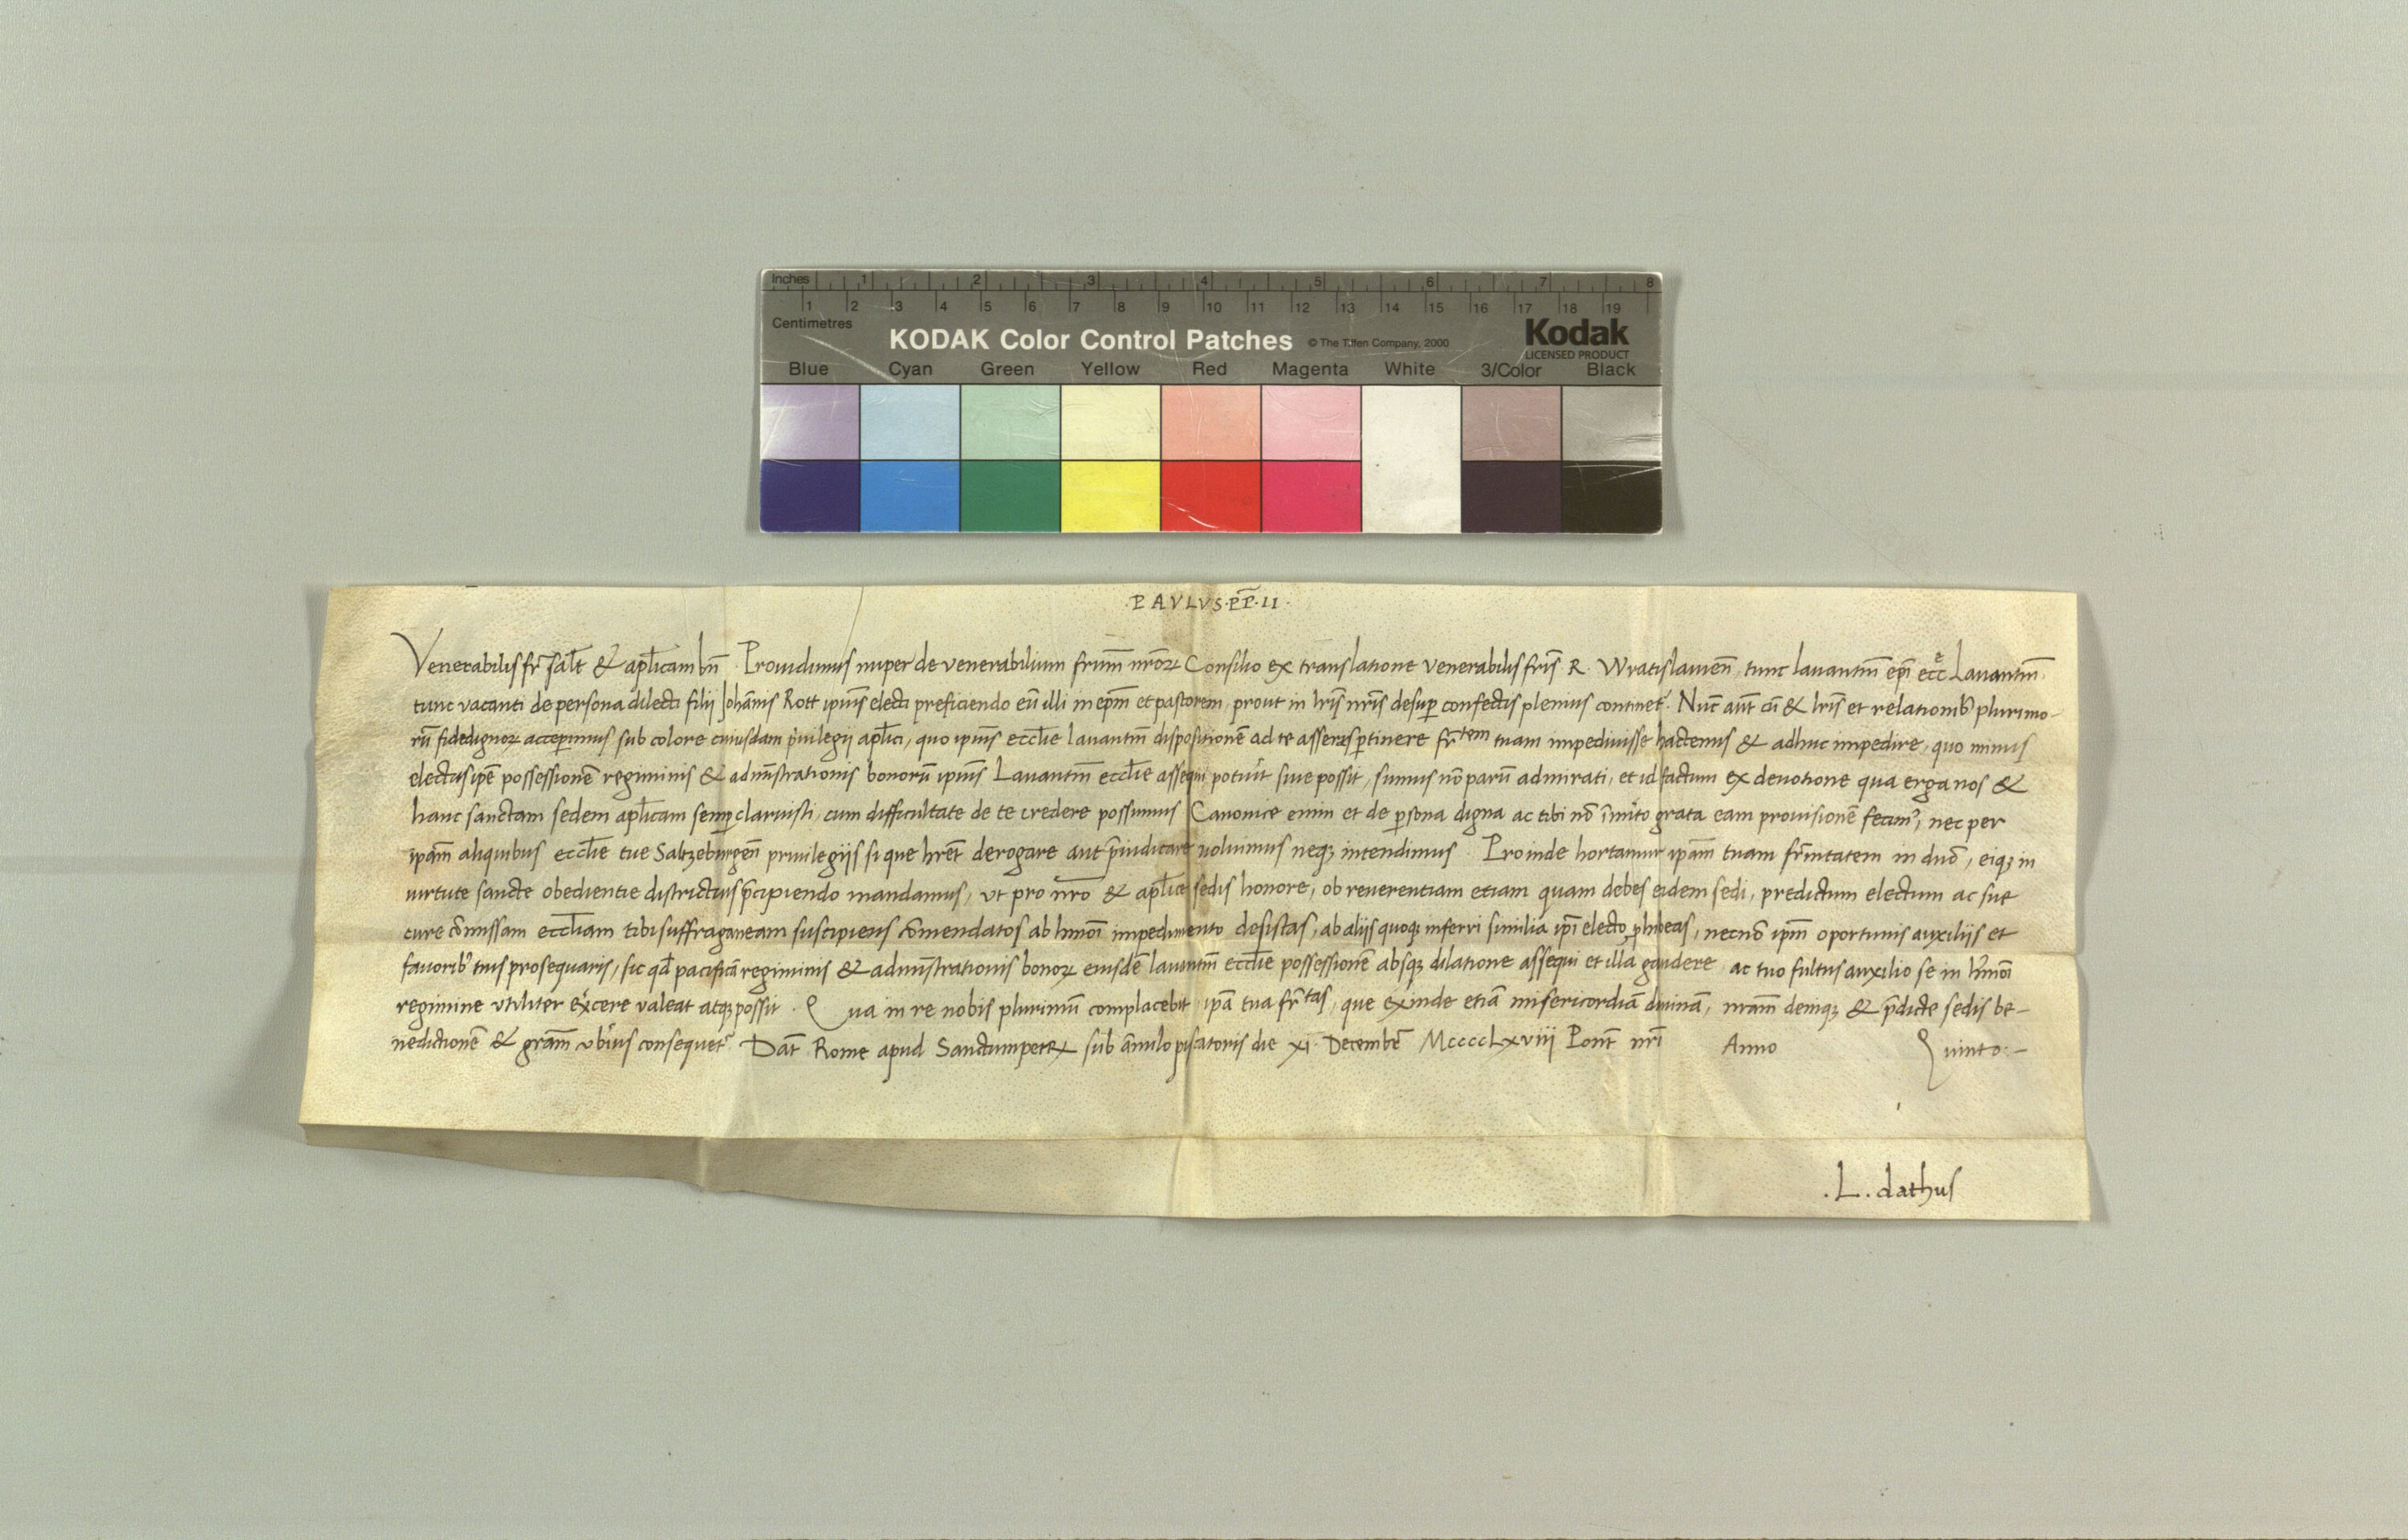 Inches 1 2 3 4 5 6 7 8
1 2 3 4 5 6 7 8 9 10 11 12 13 14 15 16 17 18 19
Centimetres
KODAK Color Control Patches © The Tiffen Company, 2000 Kodak
LICENSED PRODUCT
Blue Cyan Green Yellow Red Magenta White 3/Color Black
.PAVLVS.PP̄.II.
Venerabilis fr̄ sal̄t & apl̄icam bn̄. Prouidimus nuper de venerabilium frum̄ nr̄oꝝ Consilio ex translatione venerabilis fris̄ R. Wratislauien̄, tunc lauantin̄ ep̄i ecc̄e Lauantin̄.
tunc vacanti de persona dilecti filij Joh̄anis Rott ipius̄ electi preficiendo eū illi in ep̄m et pastorem, prout in lr̄is nr̄is desuꝑ confectis plenius continet̄. Nūc aūt cū & lr̄is et relationibꝰ plurimo-
rū fidedignoꝝ accepimus sub colore cuiusdam pͥuilegij apl̄ici, quo ipius̄ eccl̄ie lauantin̄ dispositionē ad te asseres ꝑtinere fr̄tem tuam impediuisse hactenus & adhuc impedire, quo minus
electus ip̄e possessionē regiminis & admīstrationis bonorū ipius̄ Lauantin̄ eccl̄ie assequi potuīt siue possit, sumus nō parū admirati, et id factum ex deuotione qua erga nos &
hanc sanctam sedem apl̄icam semꝑ claruisti, cum difficultate de te credere possumus Canonice enim et de ꝑsona digna ac tibi nō īmīto grata eam prouisionē fecimꝰ, nec per
ipām aliquibus eccl̄ie tue Saltzeburgen̄ priuilegijs si que hr̄et derogare aut p̄iudicare uoluimus neqꝫ intendimus. Proinde hortamur ipām tuam fr̄nitatem in dn̄o, eiqꝫ in
uirtute sancte obedientie districtius p̄cipiendo mandamus, vt pro nr̄o & apl̄ice sedis honore, ob reuerentiam etiam quam debes eidem sedi, predictum electum ac sue
cure cōmissam eccl̄iam tibi suffraganeam suscipiens cōmendatos ab hmōi impedimento desistas, ab aliis quoqꝫ inferri similia ip̄i electo ꝓhibeas, necnō ip̄m oportunis auxilijs et
fauoribꝰ tuis prosequaris, sic qd̄ pacificā regiminis & admīstrationis bonoꝝ eiusdē lauantin̄ eccl̄ie possessionē absqꝫ dilatione assequi et illa gaudere, ac tuo fultus auxilio se in hmōi
regimine vtiliter exc̄ere valeat atqꝫ possit. Qua in re nobis plurimū complacebit ipā tua fr̄tas, que exinde etiā misericordiā diuinā, nram̄ deniqꝫ & p̄dicte sedis be-
nedictionē & gram̄ vbīus consequet̄. Dat̄ Rome apud Sanctumpetꝝ sub ānulo piscatoris die xi. Decembr̄ MccccLxviij Pont̄ nrī Anno Quinto.-
.L. dathus